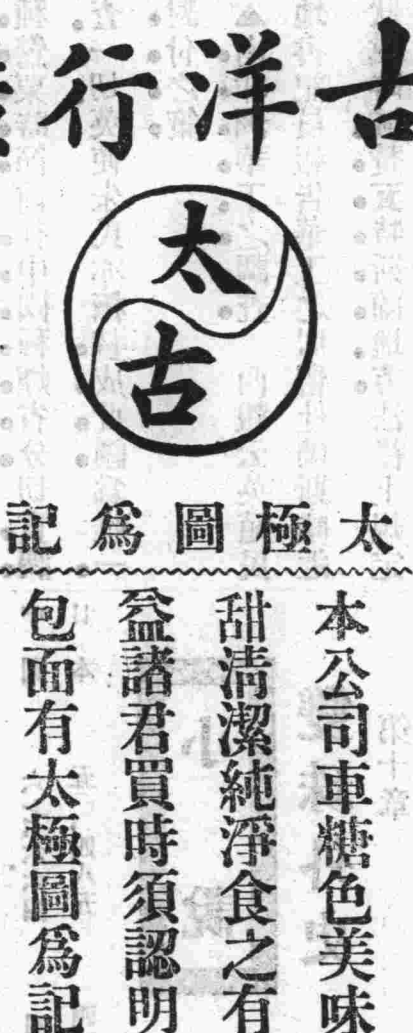 古洋行
太古
太極圖爲記
本公司車糖色美味
甜清潔純淨食之有
益諸君買時須認明
包面有太極圖爲記